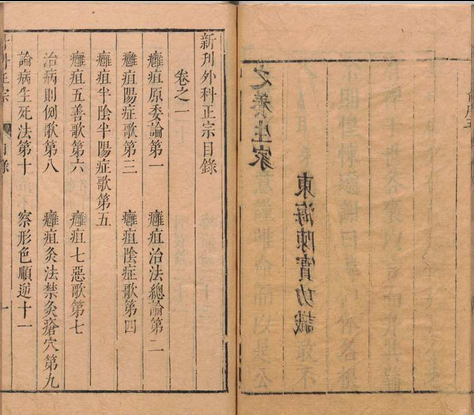 之養生家
東海陳實功識
新刊外科正宗目錄
卷之一
癰疽原委論第一 癰疽治法總論第二
癰疽陽症歌第三 癰疽陰症歌第四
癰疽半陰半陽症歌第五
癰疽五善歌第六 癰疽七惡歌第七
治病則例歌第八 癰疽灸法禁灸瘡穴第九
論病生死法第十 察形色順逆十一